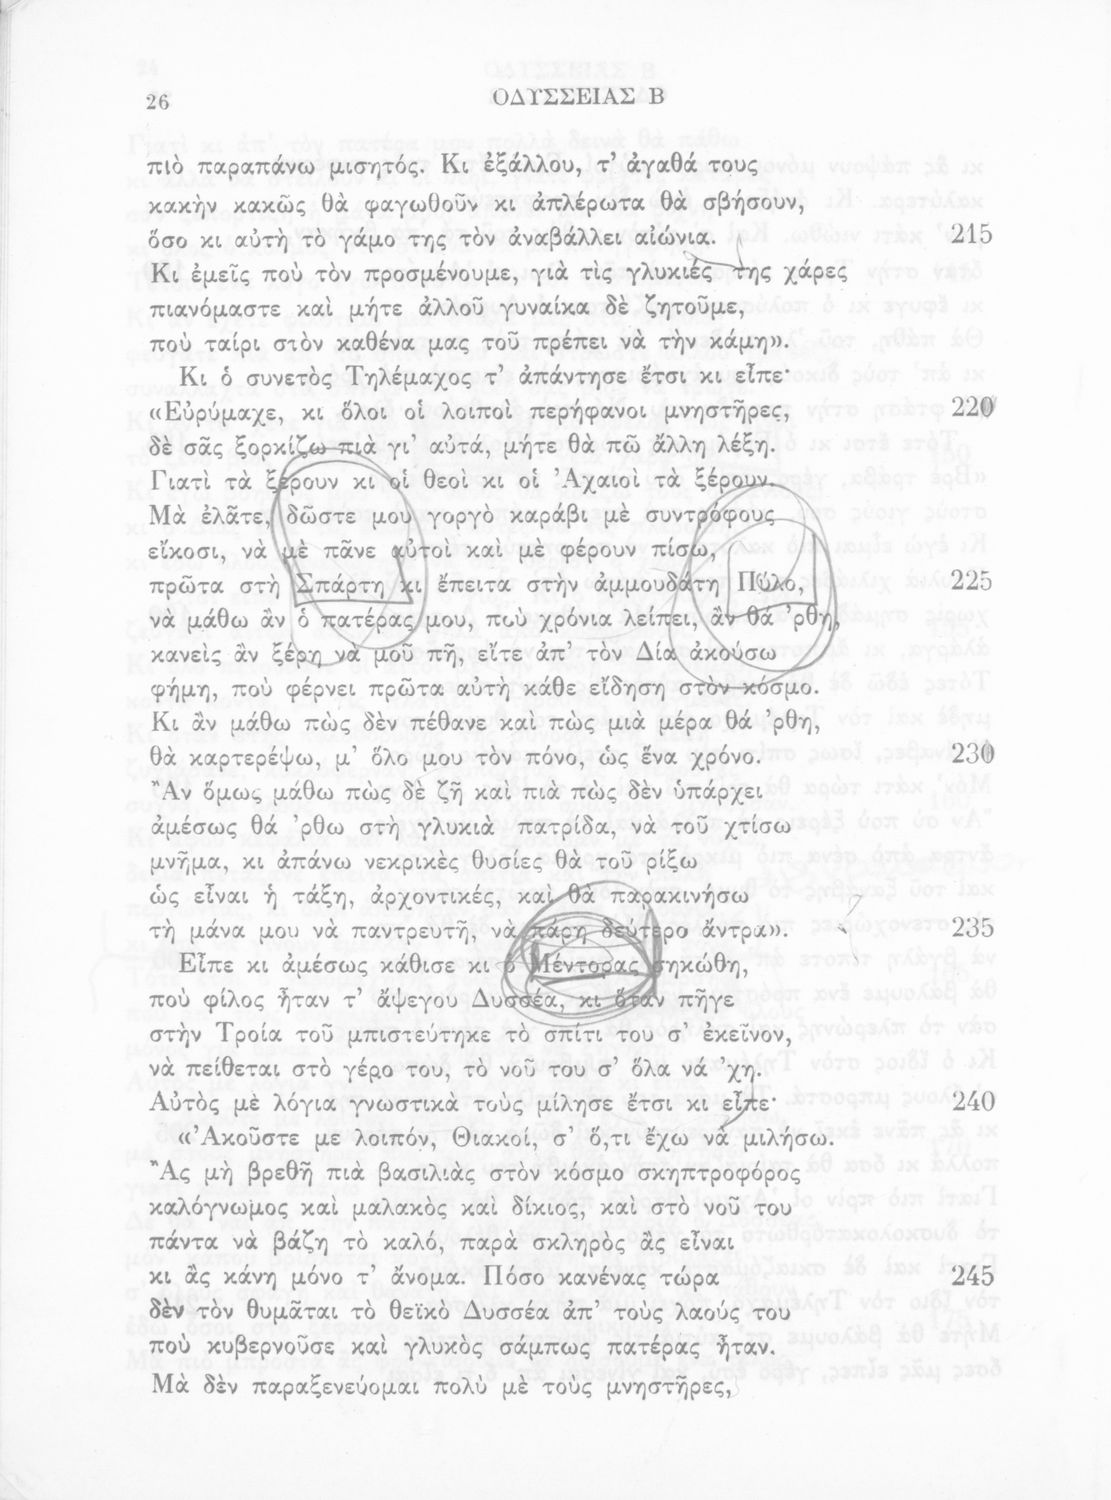 26
ΟΔΥΣΣΕΙΑΣ Β
πιὸ παραπάνω μισητός. Κι ἐξάλλου, τ’ ἀγαθά τους
κακὴν κακῶς θὰ φαγωθοῦν κι ἀπλέρωτα θὰ σβήσουν,
ὅσο κι αὐτὴ τὸ γάμο της τὸν ἀναβάλλει αἰώνια. 215
Κι ἐμεῖς ποὺ τὸν προσμένουμε, γιὰ τὶς γλυκιές της χάρες
πιανόμαστε καὶ μήτε ἀλλοῦ γυναίκα δὲ ζητοῦμε,
ποὺ ταίρι στὸν καθένα μας τοῦ πρέπει νὰ τὴν κάμη».
Κι ὁ συνετὸς Τηλέμαχος τ’ ἀπάντησε ἔτσι κι εἶπε·
«Εὐρύμαχε, κι ὅλοι οἱ λοιποὶ περήφανοι μνηστῆρες, 220
δὲ σᾶς ξορκίζω πιὰ γι’ αὐτά, μήτε θὰ πῶ ἄλλη λέξη.
Γιατὶ τὰ ξέρουν κι οἱ θεοὶ κι οἱ Ἀχαιοὶ τὰ ξέρουν.
Μὰ ἐλᾶτε, δῶστε μου γοργὸ καράβι μὲ συντρόφους
εἴκοσι, νὰ μὲ πᾶνε αὐτοὶ καὶ μὲ φέρουν πίσω,
πρῶτα στὴ Σπάρτη κι ἔπειτα στὴν ἀμμουδάτη Πύλο, 225
νὰ μάθω ἂν ὁ πατέρας μου, ποὺ χρόνια λείπει, ἂν θά ’ρθη,
κανεὶς ἂν ξέρη νὰ μοῦ πῆ, εἴτε ἀπ’ τὸν Δία ἀκούσω
φήμη, ποὺ φέρνει πρῶτα αὐτὴ κάθε εἴδηση στὸν κόσμο.
Κι ἂν μάθω πὼς δὲν πέθανε καὶ πὼς μιὰ μέρα θά ’ρθη,
θὰ καρτερέψω, μ’ ὅλο μου τὸν πόνο, ὡς ἕνα χρόνο. 230
Ἂν ὅμως μάθω πὼς δὲ ζῆ καὶ πιὰ πὼς δὲν ὑπάρχει
ἀμέσως θά ’ρθω στὴ γλυκιὰ πατρίδα, νὰ τοῦ χτίσω
μνῆμα, κι ἀπάνω νεκρικὲς θυσίες θὰ τοῦ ρίξω
ὡς εἶναι ἡ τάξη, ἀρχοντικές, καὶ θὰ παρακινήσω
τὴ μάνα μου νὰ παντρευτῆ, νὰ πάρη δεύτερο ἄντρα». 235
Εἶπε κι ἀμέσως κάθισε κι ὁ Μέντορας σηκώθη,
ποὺ φίλος ἦταν τ’ ἄψεγου Δυσσέα, κι ὅταν πῆγε
στὴν Τροία τοῦ μπιστεύτηκε τὸ σπίτι του σ’ ἐκεῖνον,
νὰ πείθεται στὸ γέρο του, τὸ νοῦ του σ’ ὅλα νά ’χη.
Αὐτὸς μὲ λόγια γνωστικὰ τοὺς μίλησε ἔτσι κι εἶπε· 240
«Ἀκοῦστε με λοιπόν, Θιακοί, σ’ ὅ,τι ἔχω νὰ μιλήσω.
Ἂς μὴ βρεθῆ πιὰ βασιλιὰς στὸν κόσμο σκηπτροφόρος
καλόγνωμος καὶ μαλακὸς καὶ δίκιος, καὶ στὸ νοῦ του
πάντα νὰ βάζη τὸ καλό, παρὰ σκληρὸς ἂς εἶναι
κι ἂς κάνη μόνο τ’ ἄνομα. Πόσο κανένας τώρα 245
δὲν τὸν θυμᾶται τὸ θεϊκὸ Δυσσέα ἀπ’ τοὺς λαούς του
ποὺ κυβερνοῦσε καὶ γλυκὸς σάμπως πατέρας ἦταν.
Μὰ δὲν παραξενεύομαι πολὺ μὲ τοὺς μνηστῆρες,